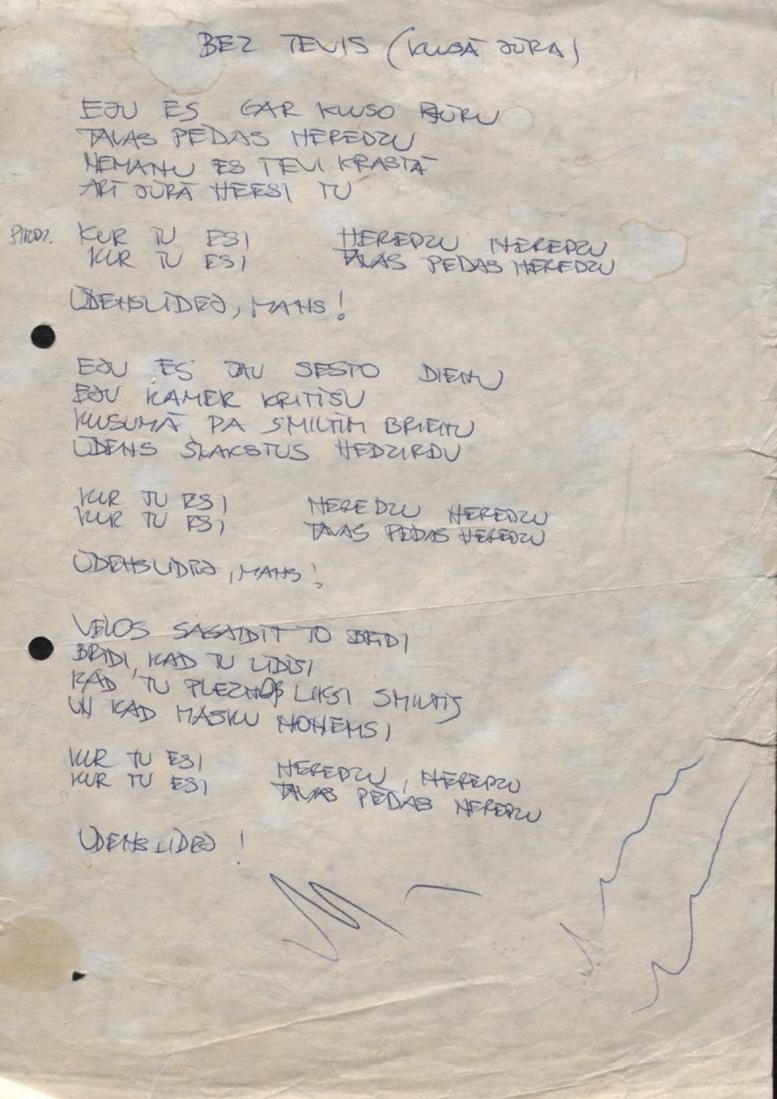 BEZ TEVIS (KLUSĀ JŪRA)
EJU ES GAR KLUSO JŪRU
TAVAS PĒDAS NEREDZU
NEMANU ES TEVI KRASTĀ
ARĪ JŪRĀ NEESI TU
PIEDZ. KUR TU ESI NEREDZU NEREDZU
KUR TU ESI TAVAS PĒDAS NEREDZU
ŪDENSLĪDĒJ, MANS!
EJU ES JAU SESTO DIENU
EJU KAMĒR KRITĪŠU
KLUSUMĀ PA SMILTĪM BRIENU
ŪDENS ŠĻAKSTUS NEDZIRDU
KUR TU ESI NEREDZU NEREDZU
KUR TU ESI TAVAS PĒDAS NEREDZU
ŪDENSLĪDĒJ, MANS!
VĒLOS SAGAIDĪT TO BRĪDI
BRĪDI, KAD TU LĪDĪSI
KAD TU PLEZNAS LIKSI SMILTĪS
UN KAD MASKU NOŅEMSI
KUR TU ESI NEREDZU, NEREDZU
KUR TU ESI TAVAS PĒDAS NEREDZU
ŪDENSLĪDĒJ!